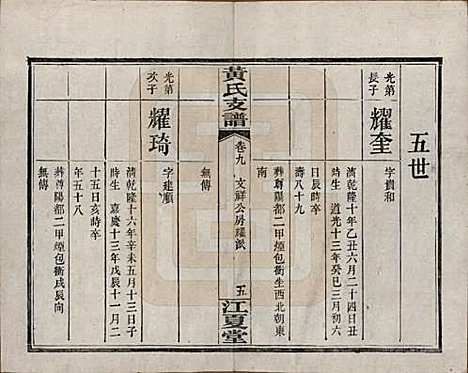 五世
光第
長子
耀奎
字貴和
清乾隆十年乙丑六月二十四日丑
時生 道光十三年癸巳三月初六
日辰時卒
壽八十九
葬尋陽都二甲煙包衝生西北朝東
南
無傳
黃氏支譜
卷九
文祥公房耀派
五
江夏堂
光第
次子
耀琦
字建順
清乾隆十六年辛未五月十三日子
時生 嘉慶十三年戊辰十一月二
十五日亥時卒
年五十八
葬尋陽都二甲煙包衝戌辰向
無傳